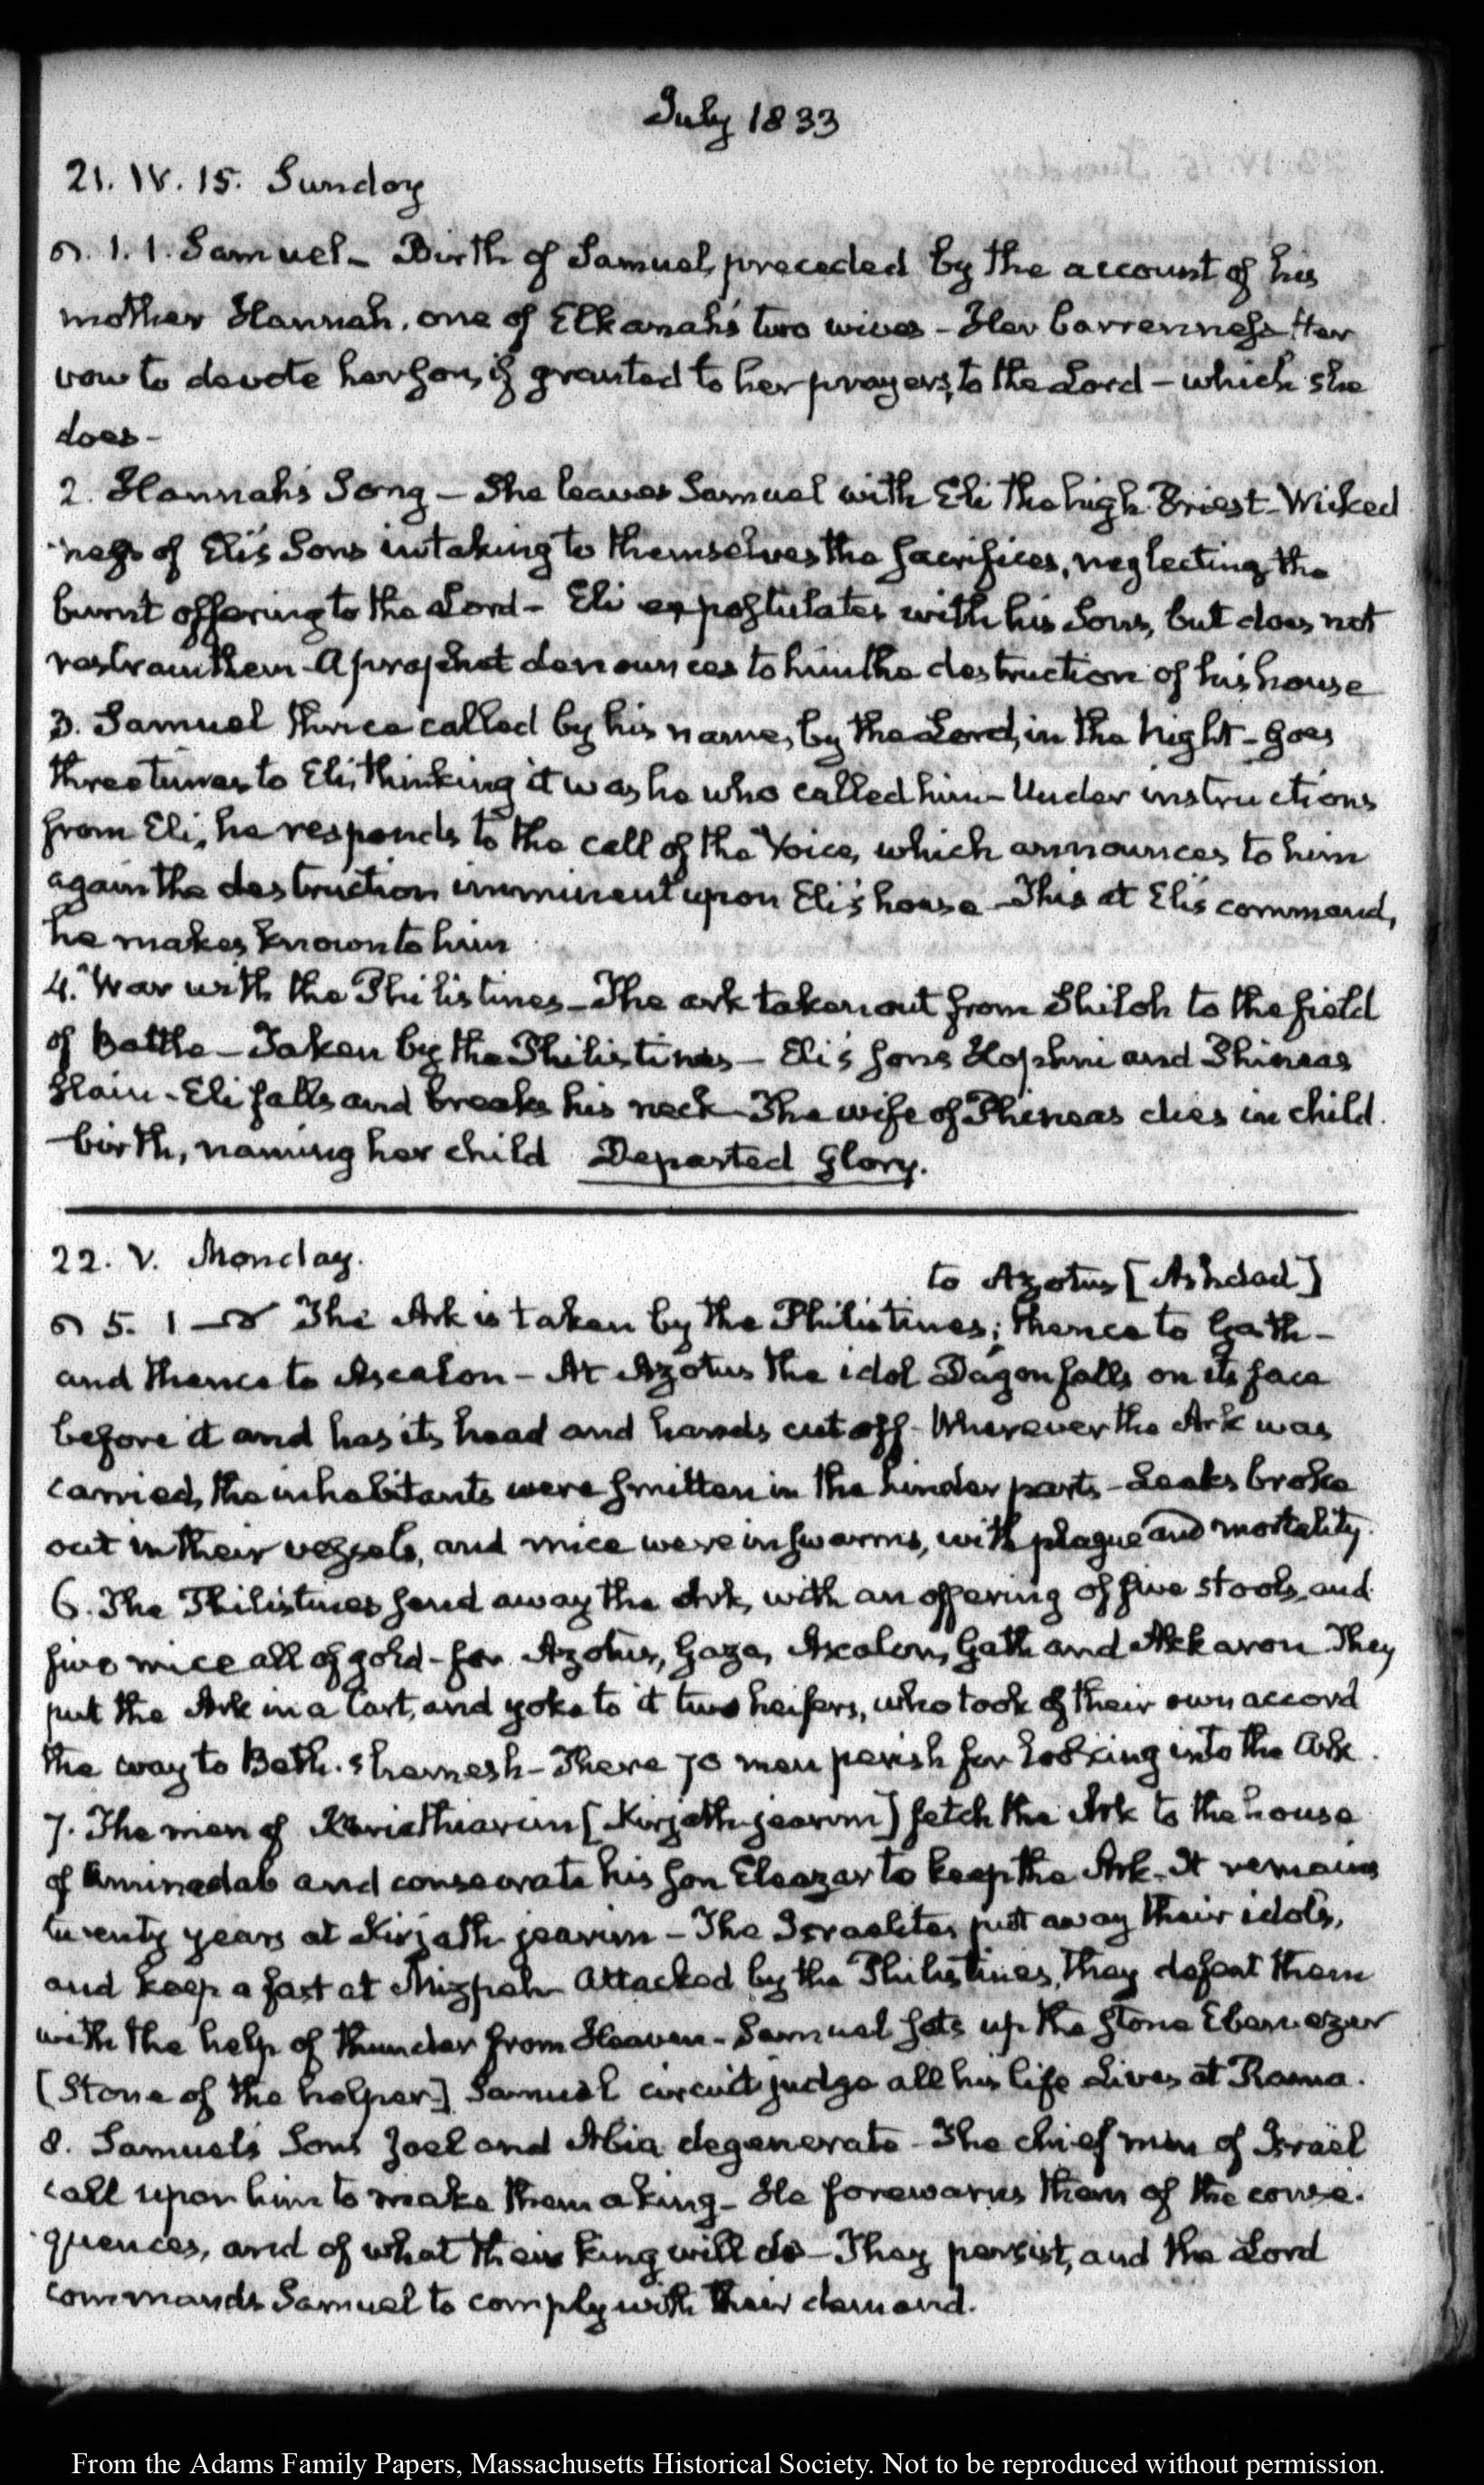 July 1833
21. IV. 15. Sunday
1. 1. Samuel - Birth of Samuel, preceded by the account of his
mother Hannah, one of Elkanah's two wives - Her barrenness Her
vow to devote her son, if granted to her prayers, to the Lord - which she
does -
2. Hannah's Song - She leaves Samuel with Eli the high Priest - Wicked
ness of Eli's Sons in taking to themselves the sacrifices, neglecting the
burnt offering to the Lord - Eli expostulates with his Sons, but does not
restrain them - A prophet denounces to him the destruction of his house
3. Samuel thrice called by his name, by the Lord, in the night - goes
three times to Eli, thinking it was he who called him - Under instructions
from Eli, he responds to the call of the Voice, which announces to him
again the destruction imminent upon Eli's house - This at Eli's command,
he makes known to him
4. War with the Philistines - The ark taken out from Shiloh to the field
of Battle - Taken by the Philistines - Eli's sons Hophni and Phineas
slain - Eli falls and breaks his neck - The wife of Phineas dies in child
-birth, naming her child Departed Glory.
22. V. Monday.
to Azotus [Ashdad]
5. 1 — 8 The Ark is taken by the Philistines; thence to Gath -
and thence to Ascalon - At Azotus the idol Dagon falls on its face
before it and has its head and hands cut off - Wherever the Ark was
carried, the inhabitants were smitten in the hinder parts - Leaks broke
out in their vessels, and mice were in swarms, with plague and mortality.
6. The Philistines send away the Ark, with an offering of five stools, and
five mice all of gold - for Azotus, Gaza, Ascalon, Gath and Akkaron They
put the Ark in a Cart, and yoke to it two heifers, who took of their own accord
the way to Beth. shemesh - There 70 men perish for looking into the Ark.
7. The men of Kariathiarim [Kirjath-jearim] fetch the Ark to the house
of Aminadab and consecrate his son Eleazar to keep the Ark - It remains
twenty years at Kirjath jearim - The Israelites put away their idols,
and keep a fast at Mizpah - Attacked by the Philistines, they defeat them
with the help of thunder from Heaven - Samuel sets up the stone Ebenezer
[Stone of the helper] Samuel circuit judge all his life Lives at Rama.
8. Samuel's Sons Joel and Abia degenerate - The chief men of Israel
call upon him to make them a king - He forewarns them of the conse.
quences, and of what their king will do - They persist, and the Lord
commands Samuel to comply with their demand.
From the Adams Family Papers, Massachusetts Historical Society. Not to be reproduced without permission.